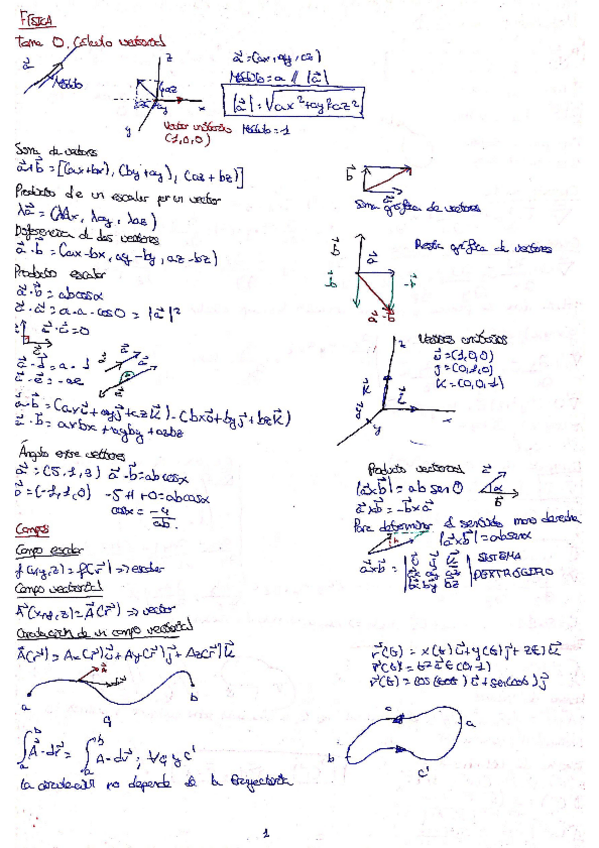 FÍSICA
Tema 0. Cálculo vectorial
a⃗ = (ax, ay, az)
Módulo = a // |a⃗|
|a⃗| = √ax²+ay²+az²
a⃗
Módulo
z
x
y
Vector unitario Módulo = 1
(1,0,0)
Suma de vectores
a⃗+b⃗ = [(ax+bx), (by+ay), (az+bz)]
Suma gráfica de vectores
Producto de un escalar por un vector
λa⃗ = (λax, λay, λaz)
Diferencia de dos vectores
a⃗-b⃗ = (ax-bx, ay-by, az-bz)
Resta gráfica de vectores
Producto escalar
a⃗·b⃗ = abcosα
a⃗·a⃗ = a·a·cos0 = |a⃗|²
a⃗·b⃗ = axbx + ayby + azbz
Vectores unitarios
i⃗ = (1,0,0)
j⃗ = (0,1,0)
K⃗ = (0,0,1)
Ángulo entre vectores
a⃗ = (5,1,3) a⃗·b⃗ = abcosα
b⃗ = (-1,1,0) -5+1+0 = abcosα
cosα = -4/ab
Producto vectorial
a⃗xb⃗ = -b⃗xa⃗
Para determinar el sentido mano derecha
|a⃗xb⃗| = absenα
SISTEMA
DEXTRÓGIRO
Campos
Campo escalar
f(x,y,z) = f(r⃗) => escalar
Campo vectorial
A⃗(x,y,z) = A⃗(r⃗) => vector
Circulación de un campo vectorial
A⃗(r⃗) = Ax(r⃗)i⃗ + Ay(r⃗)j⃗ + Az(r⃗)K⃗
a
b
∫ₐᵇ A⃗·dr⃗ = ∫ₐᵇ A·dr⃗; ∀ C y C'
La circulación no depende de la trayectoria
a
b
C'
1